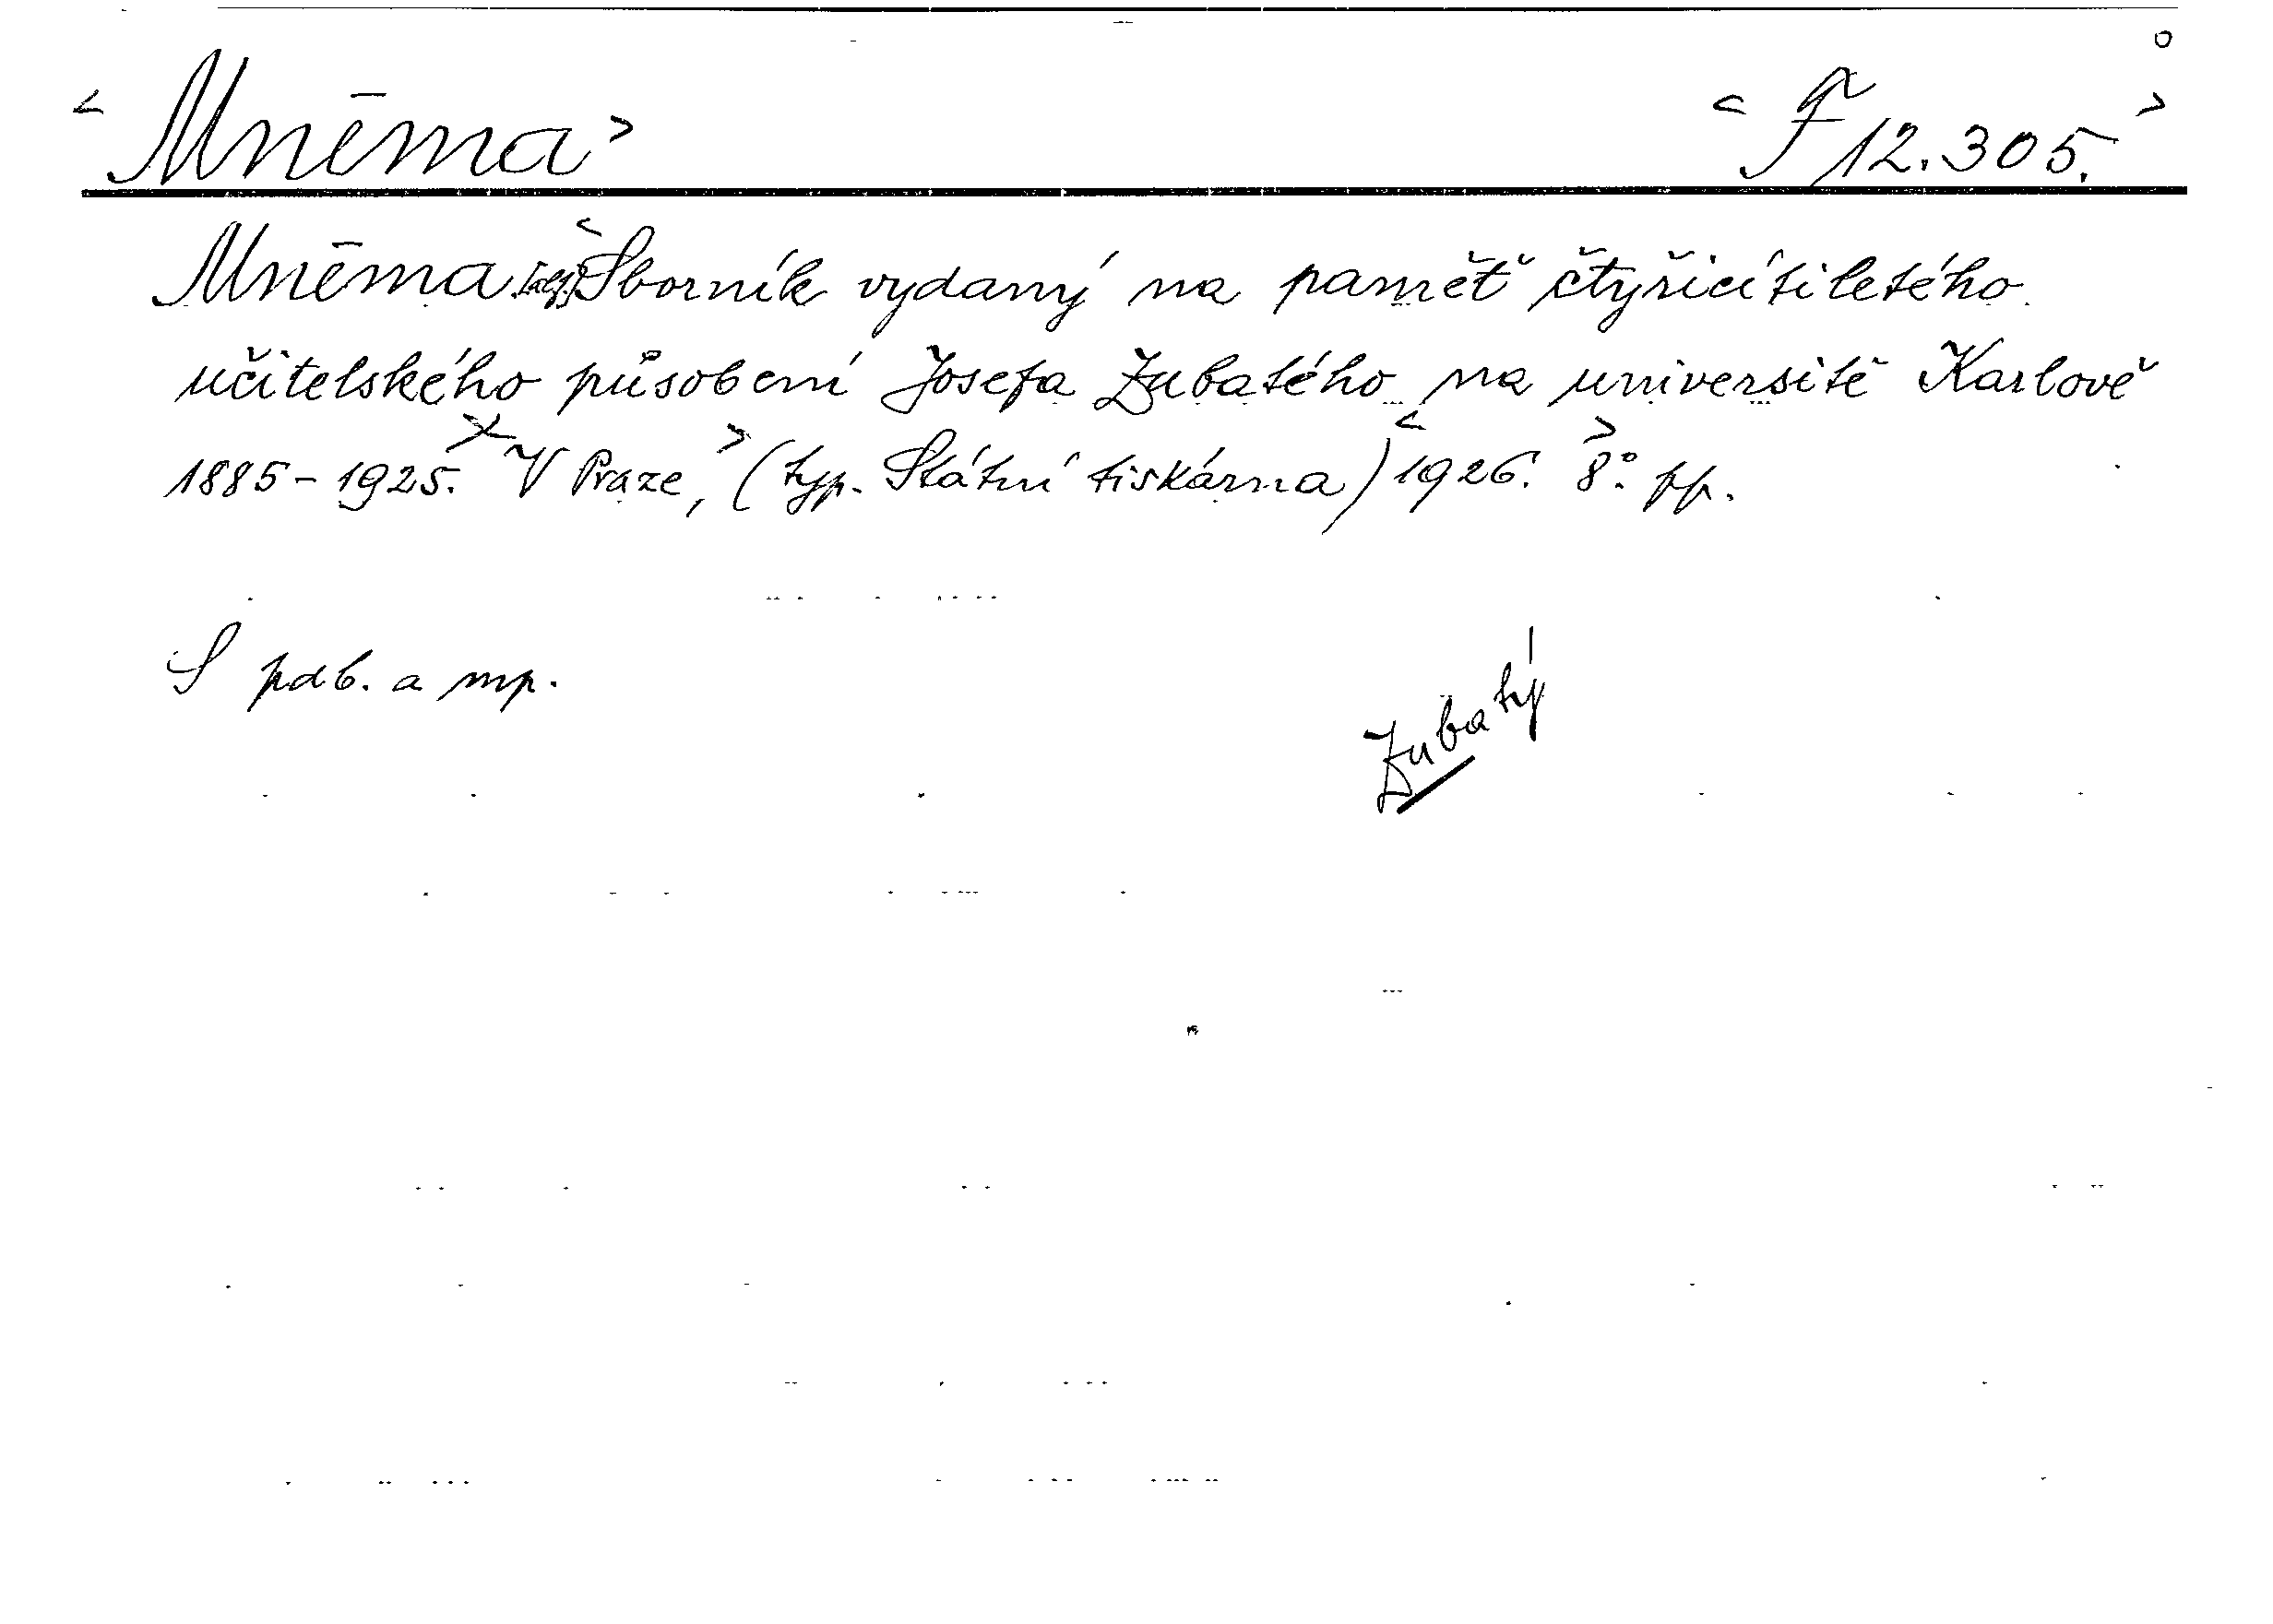 <Mnēma> <F 12.305.>
Mnēma. <Sborník vydaný na paměť čtyřicítiletého
učitelského působení Josefa Zubatého na universitě Karlově
1885-1925.> V Praze,> (typ. Státní tiskárna) <1926.> 8°. pp.
S pdb. a mp.
Zubatý